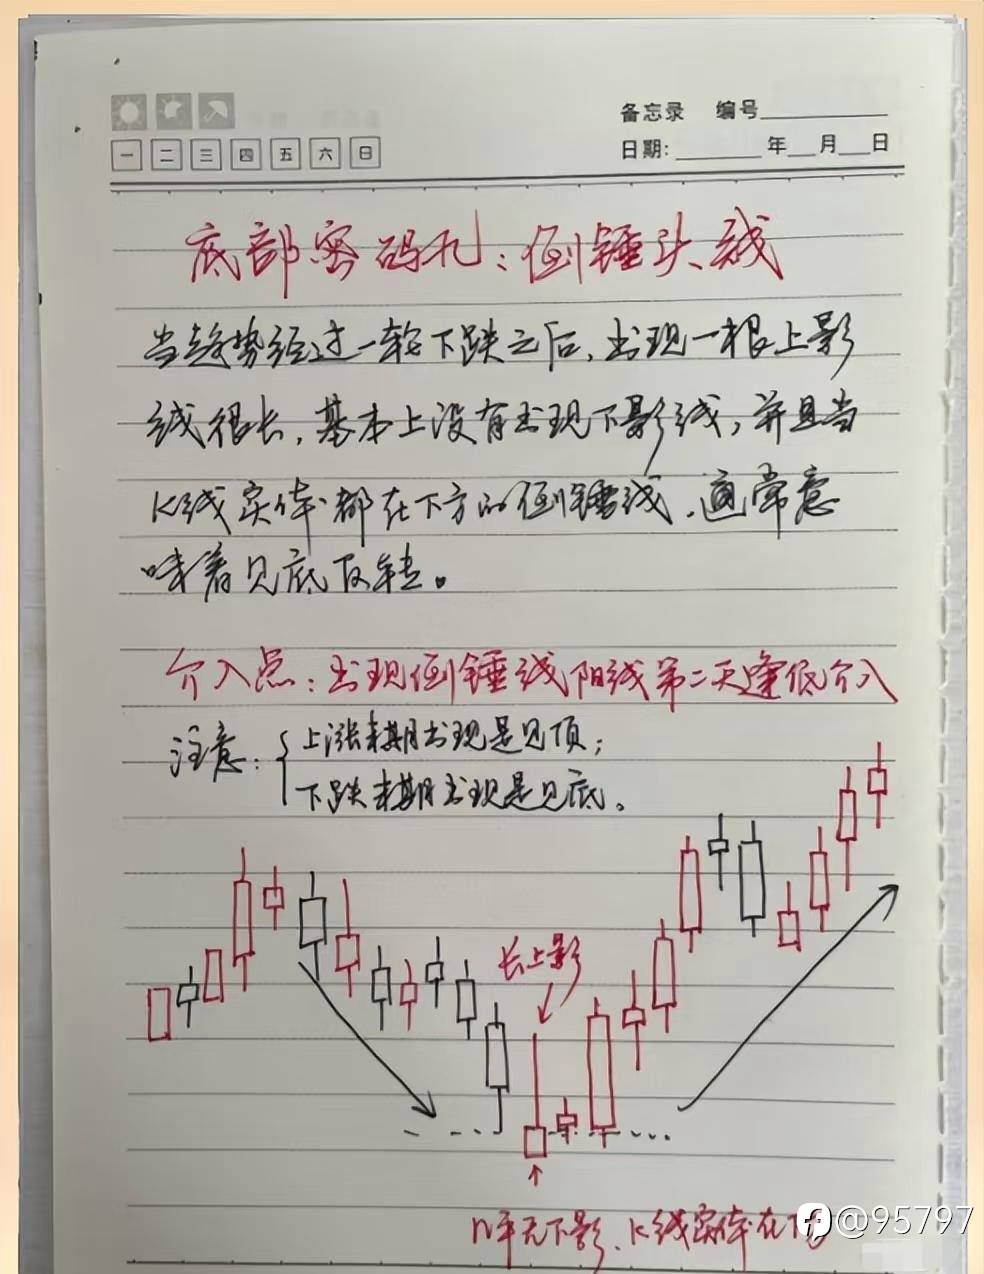 备忘录 编号
日期: 年 月 日
一 二 三 四 五 六 日
底部密码九:倒锤头线
当趋势经过一轮下跌之后,出现一根上影
线很长,基本上没有出现下影线,并且当
K线实体都在下方的倒锤线,通常意
味着见底反转。
介入点:出现倒锤线阳线第二天逢低介入
注意: 上涨末期出现是见顶;
下跌末期出现是见底。
长上影
几乎无下影、K线实体在下方
@95797